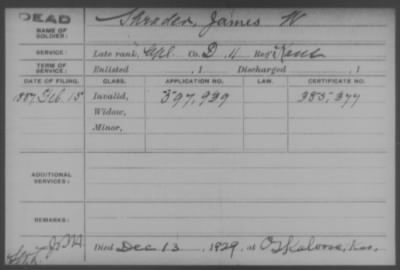 DEAD
NAME OF SOLDIER: Shrader, James W
SERVICE: Late rank, Cpl. Co. D. 11 Reg't Kans
TERM OF SERVICE: Enlisted , 1 Discharged , 1
DATE OF FILING. CLASS. APPLICATION NO. LAW. CERTIFICATE NO.
1887, Feb. 15 Invalid, 597,939 385,377
Widow,
Minor,
ADDITIONAL SERVICES:
REMARKS:
Died Dec 13, 1929, at Oskaloosa, Kas.